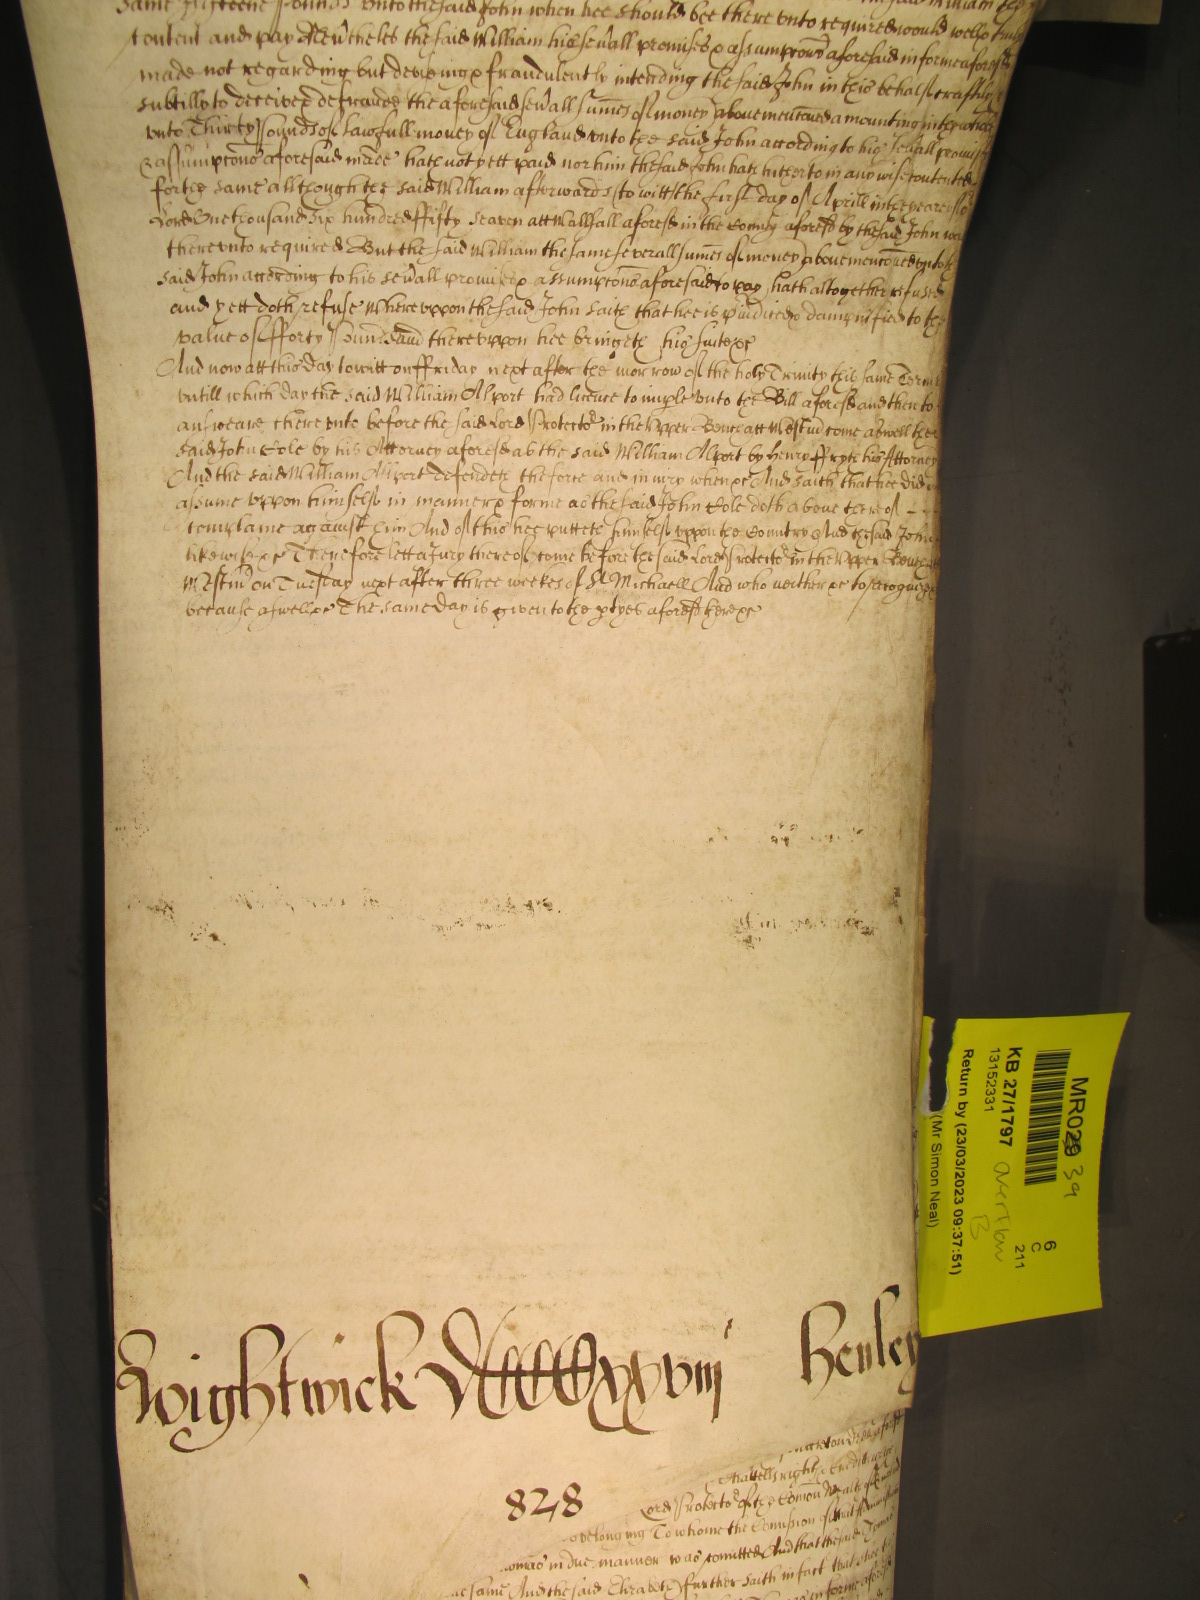 same fifteene pounds unto the said John when hee should bee there unto required would well & truly
content and pay Nev'theles the said William his sev'all promises & assumpcons aforesaid in forme aforesd
made not regarding but deviseing & fraudulently intending the said John in this behalf craftily &
subtilly to deceive & defraude the aforesaid sev'all sumes of money above mencōned amounting in the whole
unto Thirty Pounds of lawfull money of England unto the said John according to his sev'all promises
& assumptōns aforesaid made hath not yett paid nor him the said John hath hitherto in any wise contented
for the same although the said William afterwards to witt the first day of Aprill in the yeare of oʳ
Lord One thousand six hundred ffifty seaven att Wallsall aforesd in the County aforesd by the said John was
thereunto required But the said William the same severall sumes of money above mencōned unto the
said John according to his sev'all promises & assumptōns aforesaid to pay hath altogether refused
and yett doth refuse Whereuppon the said John saith that hee is p'iudiced & dampnified to the
value of fforty Pounds And thereuppon hee bringeth his suite &c
And now att this day to witt on ffriday next after the morrow of the holy Trinity this same Terme
untill which day the said William Alport had licence to imple unto the Bill aforesd and then to
answeare there unto before the said Lord Protectoʳ in the Upper Bench att Westm̄ come aswell the
said John Cole by his Attorney aforesd as the said William Alport by Henry ffryth his Attorney
And the said William Alport defendeth the force and iniury when &c And saith that hee did not
assume uppon himself in manner & forme as the said John Cole doth above thereof
complaine against him And of this hee putteth himself uppon the Country And the said John
likewise &c Therefore lett a Jury thereof come before the said Lord Protectoʳ in the Upper Bench att
Westm̄ on Tuesday next after three weekes of St Michaell And who neither &c to recognize &c
because aswell &c The same day is given to the ptyes aforesd there &c
Wightwick
DCCCCxxviij
Henley
828
Chattells rights & credits
Lord Protectoʳ of the Comōn Wealth of England
belonging To whome the Comission
in due manner was comitted And that the said Thomas
same And the said Elizabeth further saith in fact that shee
in forme aforesd
MR029 39
KB 27/1797
13152331
overflow B
6
C
211
Return by (23/03/2023 09:37:51)
(Mr Simon Neal)